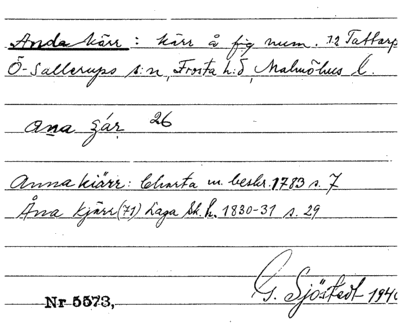 Anda kärr: kärr å fig num. 12 Tattarp
Ö-Sallerups s:n, Frosta h:d, Malmöhus l.
ana χár 26
Anna kiärr: Charta m. beskr. 1783 s. 7
Åna kjärr (71) Laga Sk. h. 1830-31 s. 29
G. Sjöstedt 1940
Nr 5573,